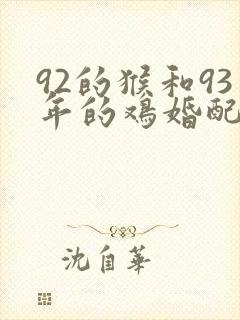 92的猴和93
年的鸡婚配
沈自华